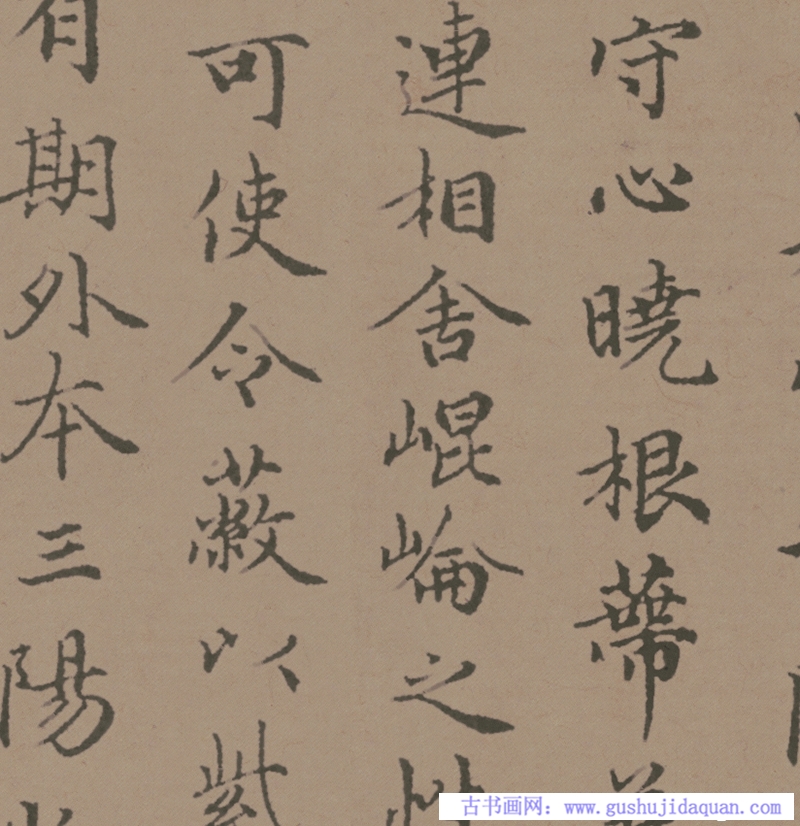 守心曉根蔕
連相舎崐崘之性
可使令蔽以紫
有期外本三陽
古书画网：www.gushujidaquan.com